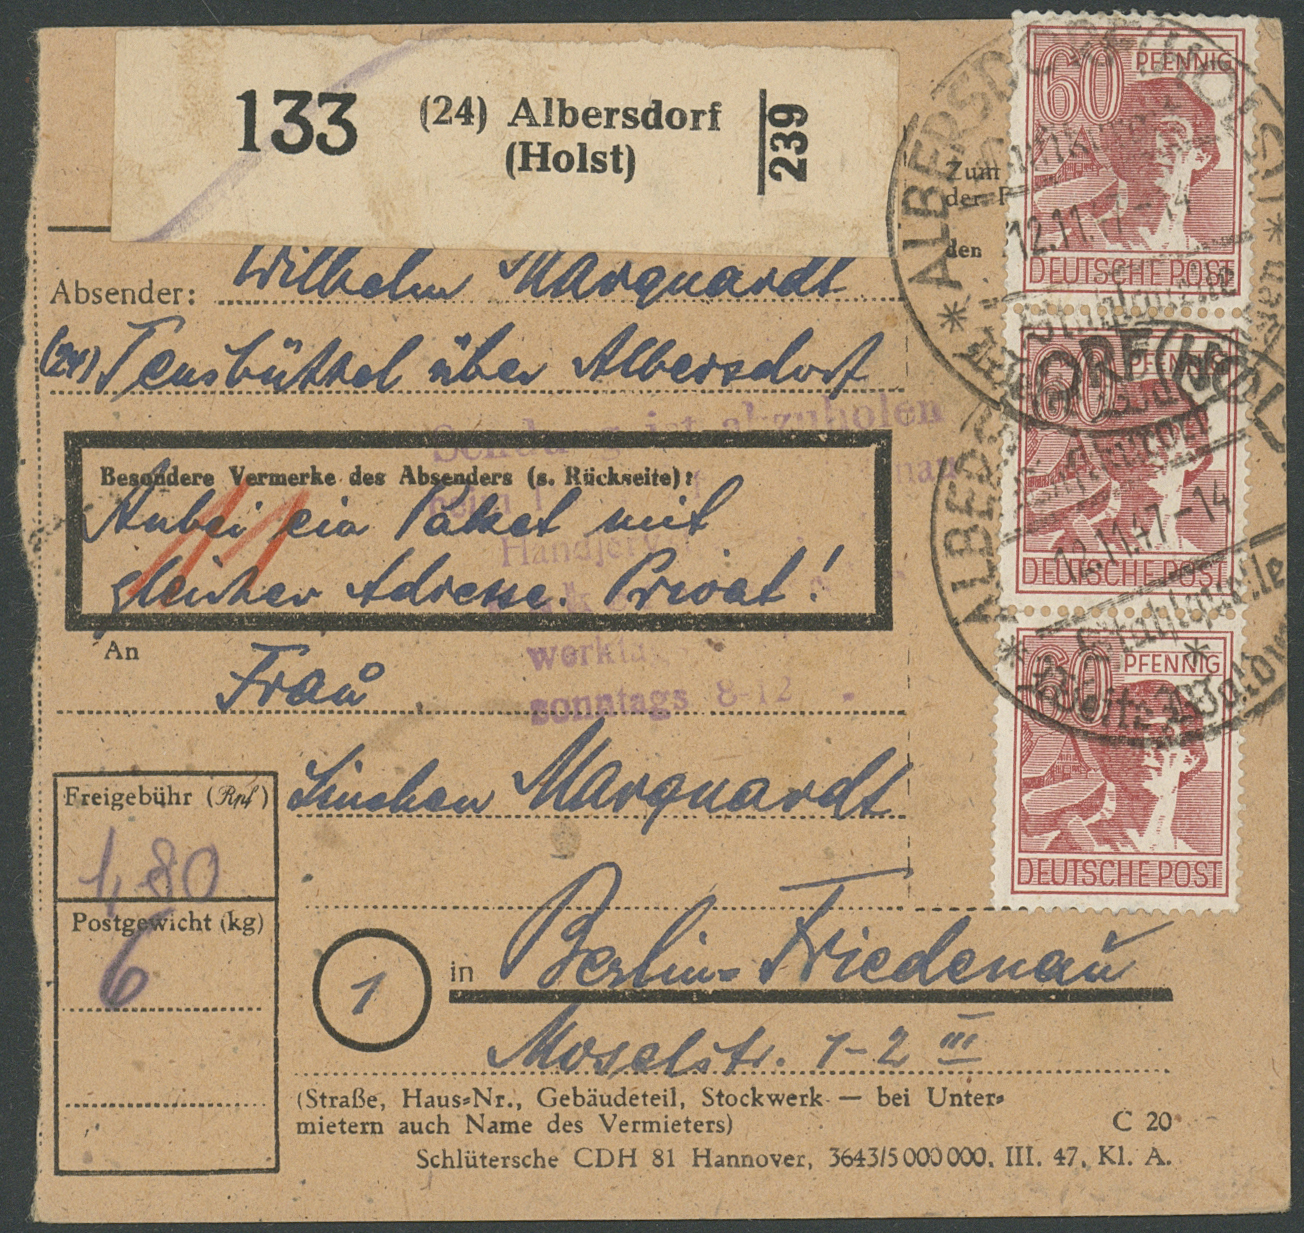 133
(24) Albersdorf
(Holst)
239
Zum
der
den
Absender: Wilhelm Marquardt
(24) Tensbüttel über Albersdorf
Sendung ist abzuholen
Besondere Vermerke des Absenders (s. Rückseite):
Anbei ein Paket mit
gleicher Adresse Privat!
werktags
sonntags 8-12
An
Frau
Linchen Marquardt
Freigebühr (Rpf)
1,80
Postgewicht (kg)
6
1
in Berlin-Friedenau
Moselstr. 1-2 III
(Straße, Haus-Nr., Gebäudeteil, Stockwerk — bei Unter-
mietern auch Name des Vermieters)
C 20
Schlütersche CDH 81 Hannover, 3643/5 000 000. III. 47. Kl. A.
60 PFENNIG
DEUTSCHE POST
60 PFENNIG
DEUTSCHE POST
60 PFENNIG
DEUTSCHE POST
ALBERSDORF (HOLST)
12.11.47-14
ALBERSDORF (HOL
12.11.47-14